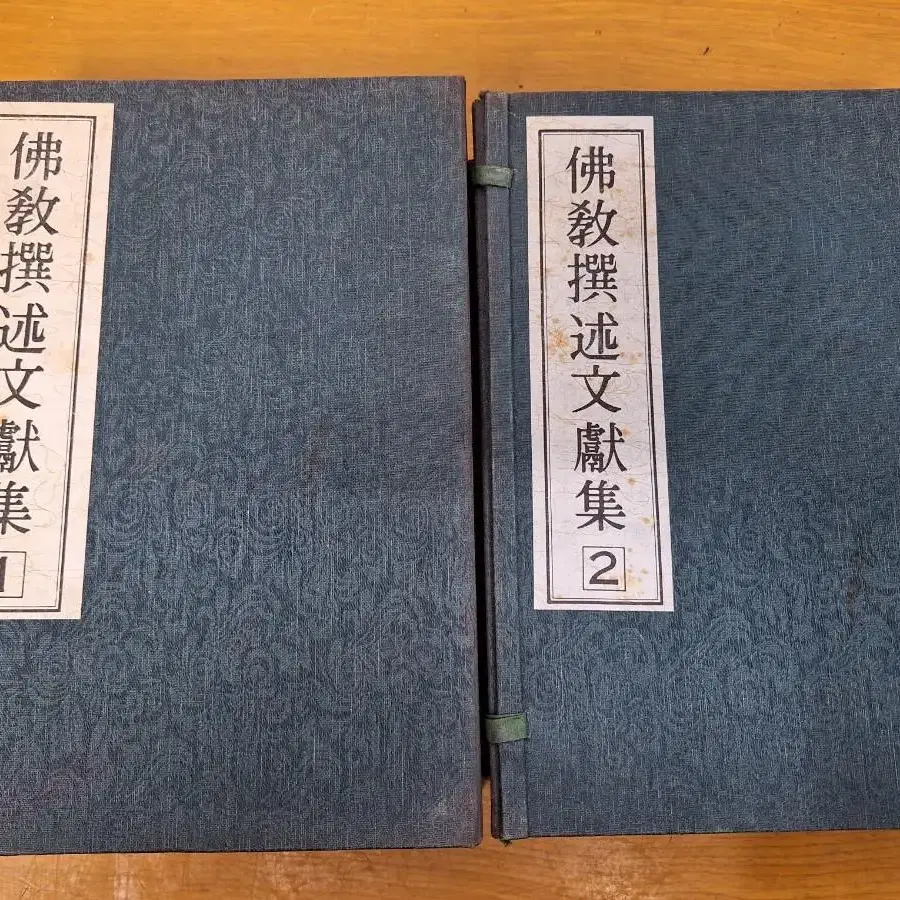 佛教撰述文獻集
1
佛教撰述文獻集
2